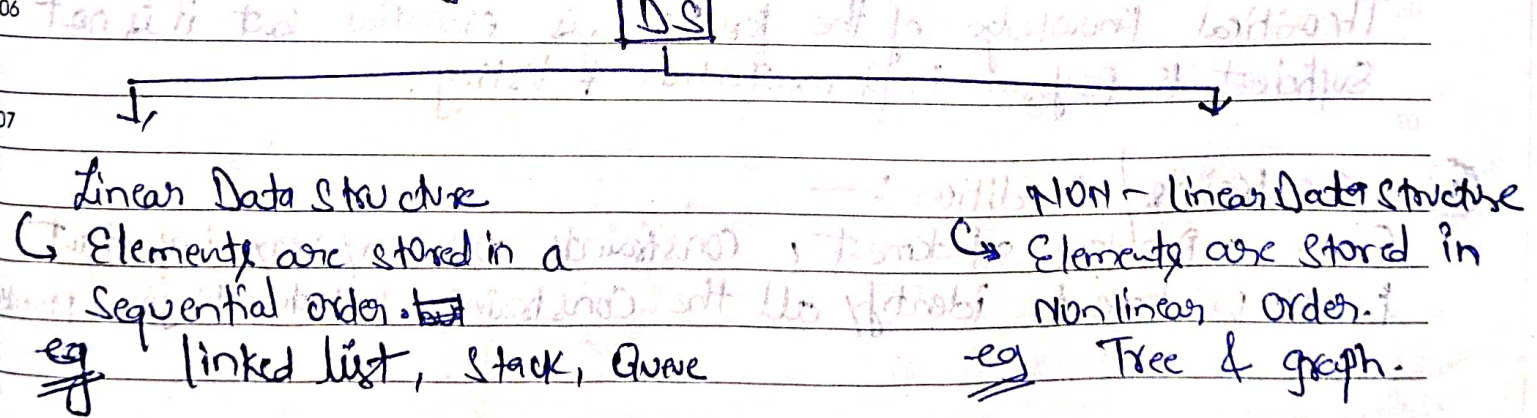 06
DS
07
Linear Data Structure
Elements are stored in a
Sequential order.
eg linked list, Stack, Queue
NON-linear Data Structure
Elements are Stored in
Non linear Order.
eg Tree & graph.